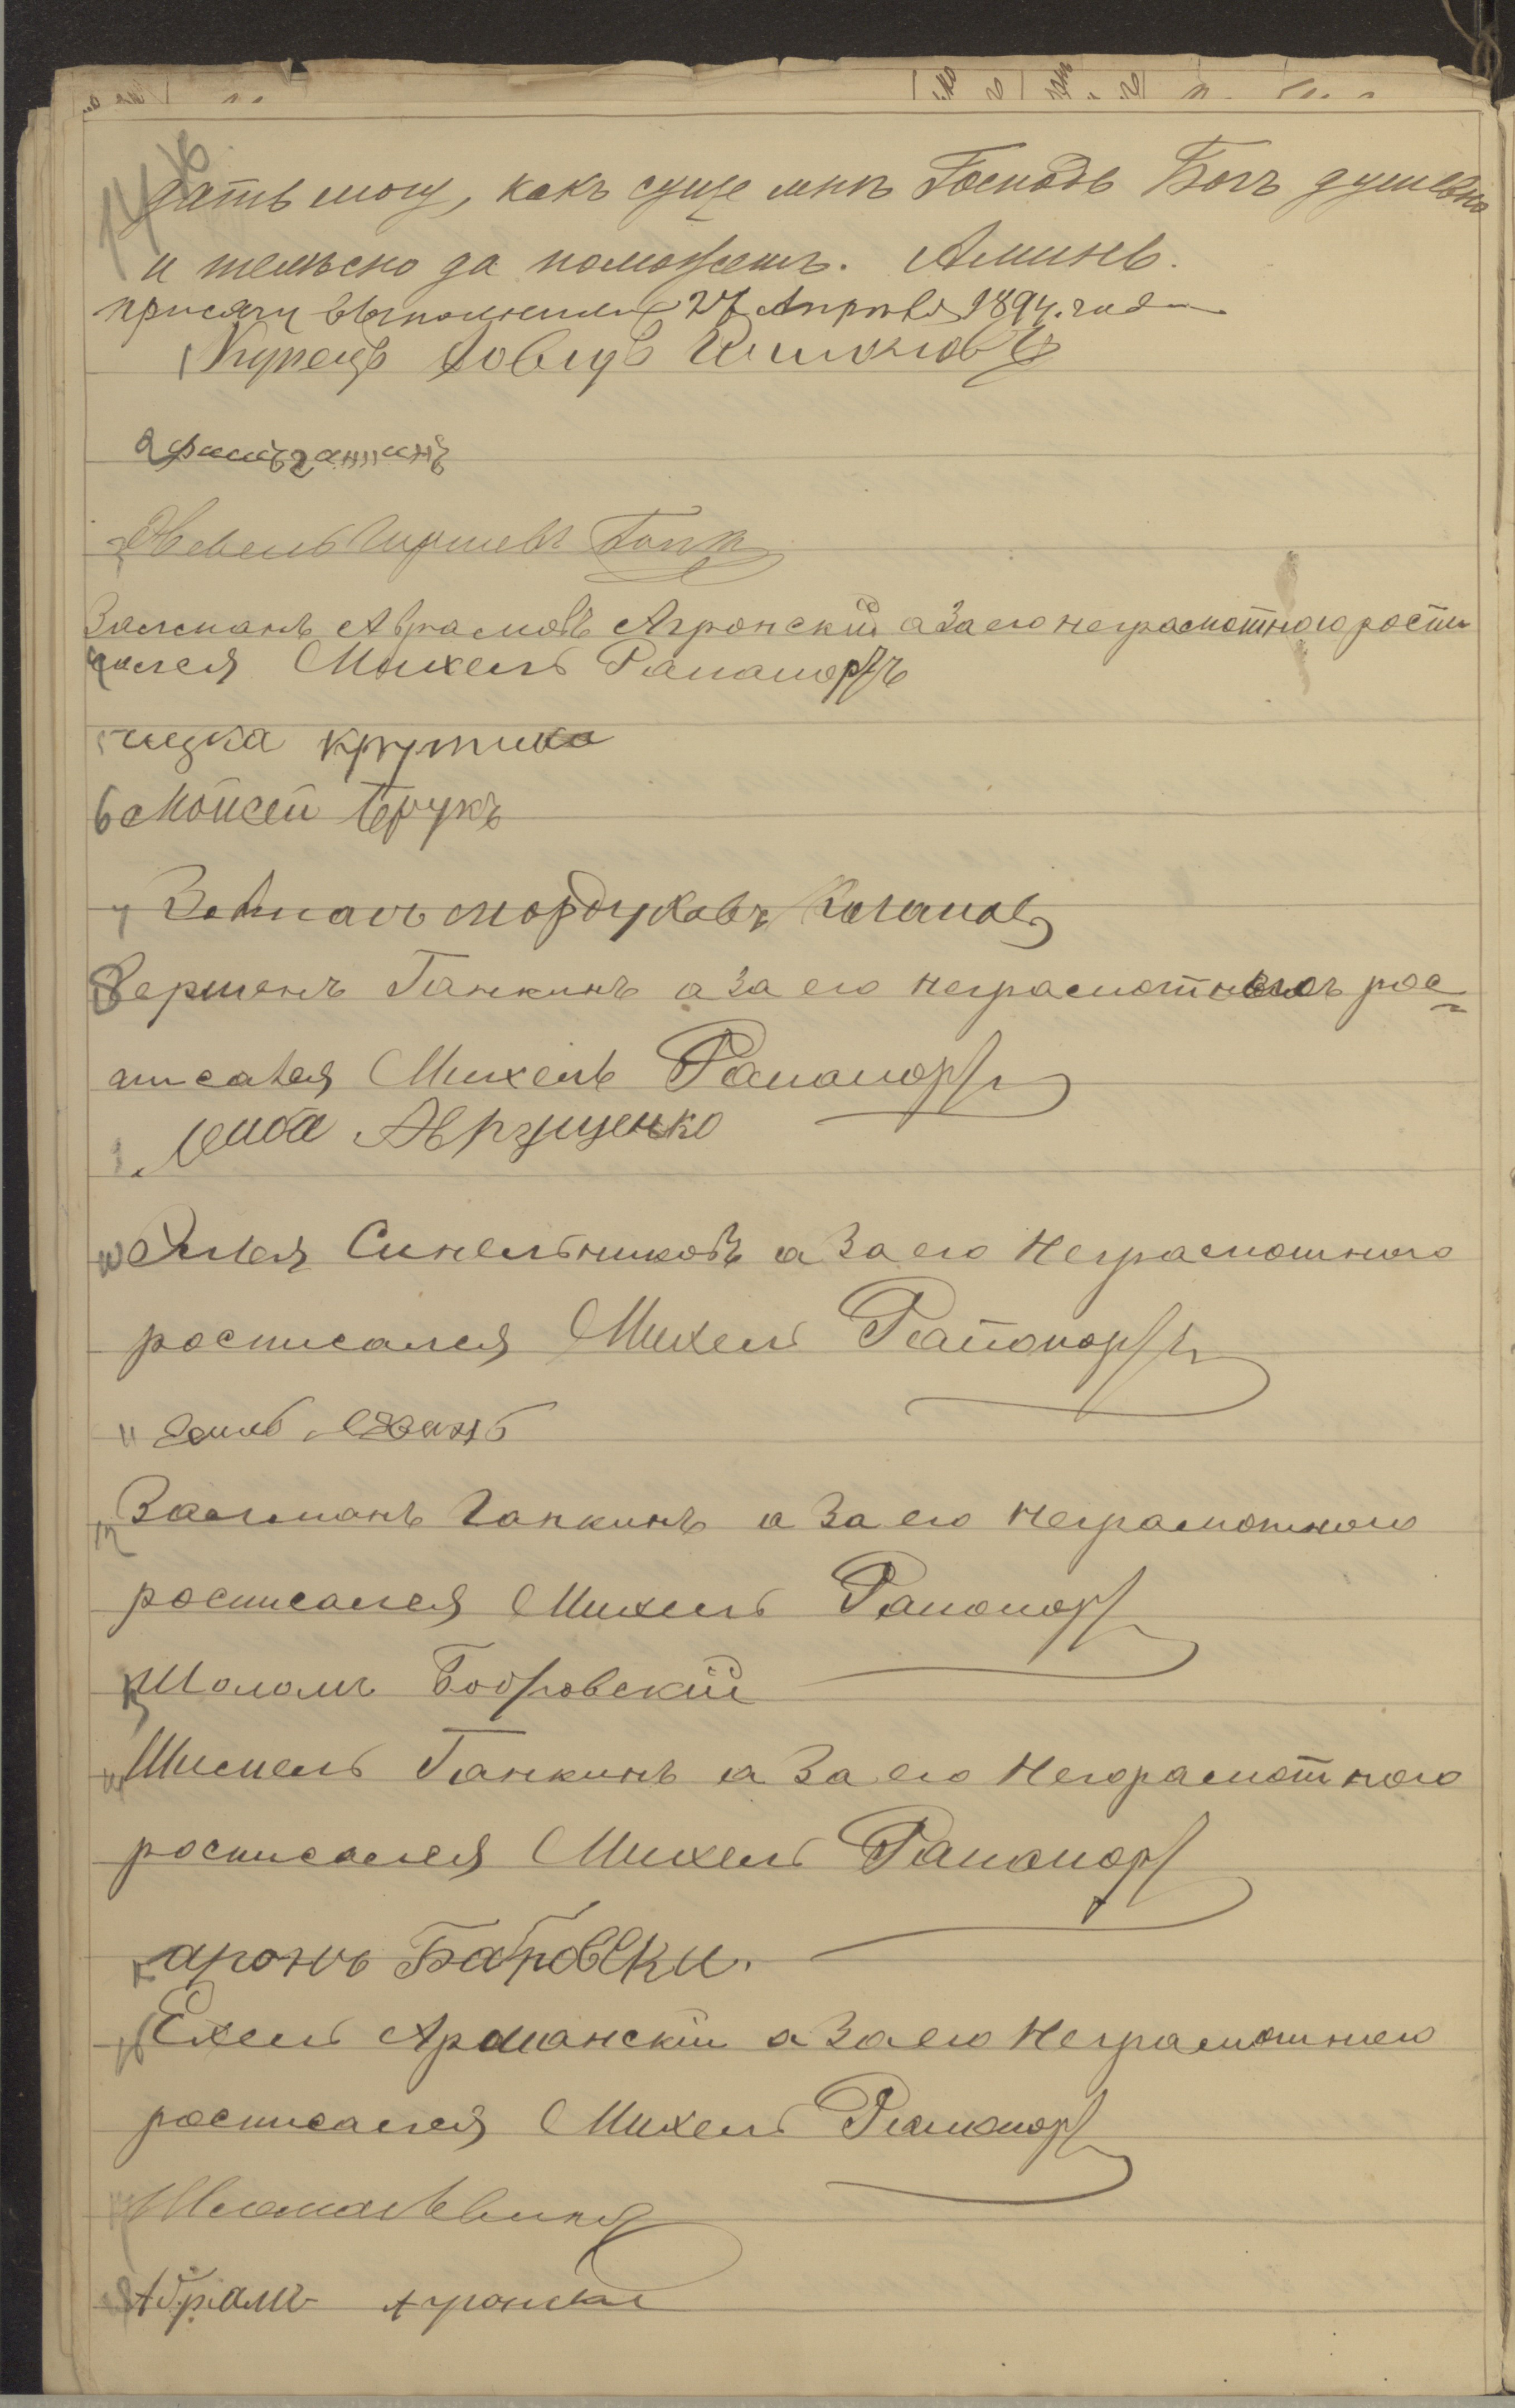 дать могу, какъ суще мнѣ Господь Богъ душевно
и тѣлесно да поможетъ. Аминь.
присягу выполнили 27 Апрѣля 1894 года
Купецъ Довидъ

Гиршевъ
Залманъ Аврамовъ Агронский а за его неграмотного роспи
сался Михель Рапапортъ
ицка крупико
6 Мойсей Брукъ
7 Залманъ Мордуховъ Каганов
8 Гершенъ Ганкинъ а за его неграмотного рос=
писался Михель Рапапорт
Лейба Аврущенко
10 Элея Синельниковъ а за его неграмотного
росписался Михель Рапопортъ
11
12 Залманъ Ганкинъ а за его неграмотного
росписался Михель Рапопорт
13 Шоломъ Бобровский
14 Шмель Ганкинъ а за его негорамотного
росписался Михель Рапапорт
аронъ Бабровски.
16 Ехель Арманскій а за его неграмотного
росписался Михель Рапопорт
Шлома Левинъ
18 Абрамъ Агронски